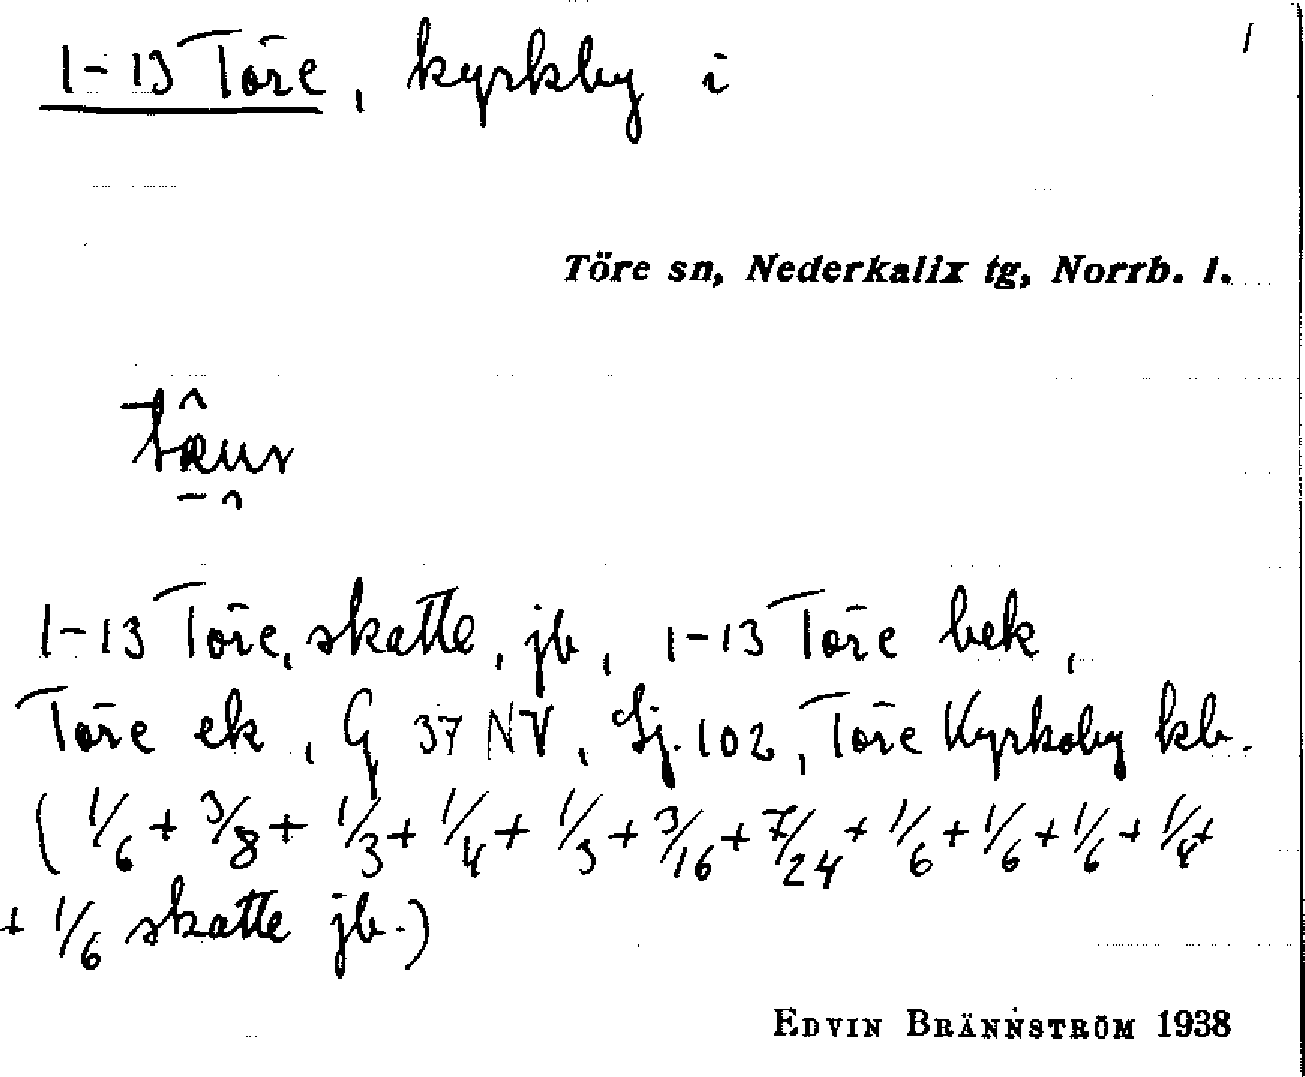 1-13 Töre, kyrkby i
1
Töre sn, Nederkalix tg, Norrb. l.
1-13 Töre, skatte, jb, 1-13 Töre bek,
Töre ek, G 37 NV, Sj. 102, Töre Kyrkoby kb.
( 1/6 + 3/8 + 1/3 + 1/4 + 1/3 + 3/16 + 7/24 + 1/6 + 1/6 + 1/6 + 1/8 +
+ 1/6 skatte jb.)
EDVIN BRÄNNSTRÖM 1938